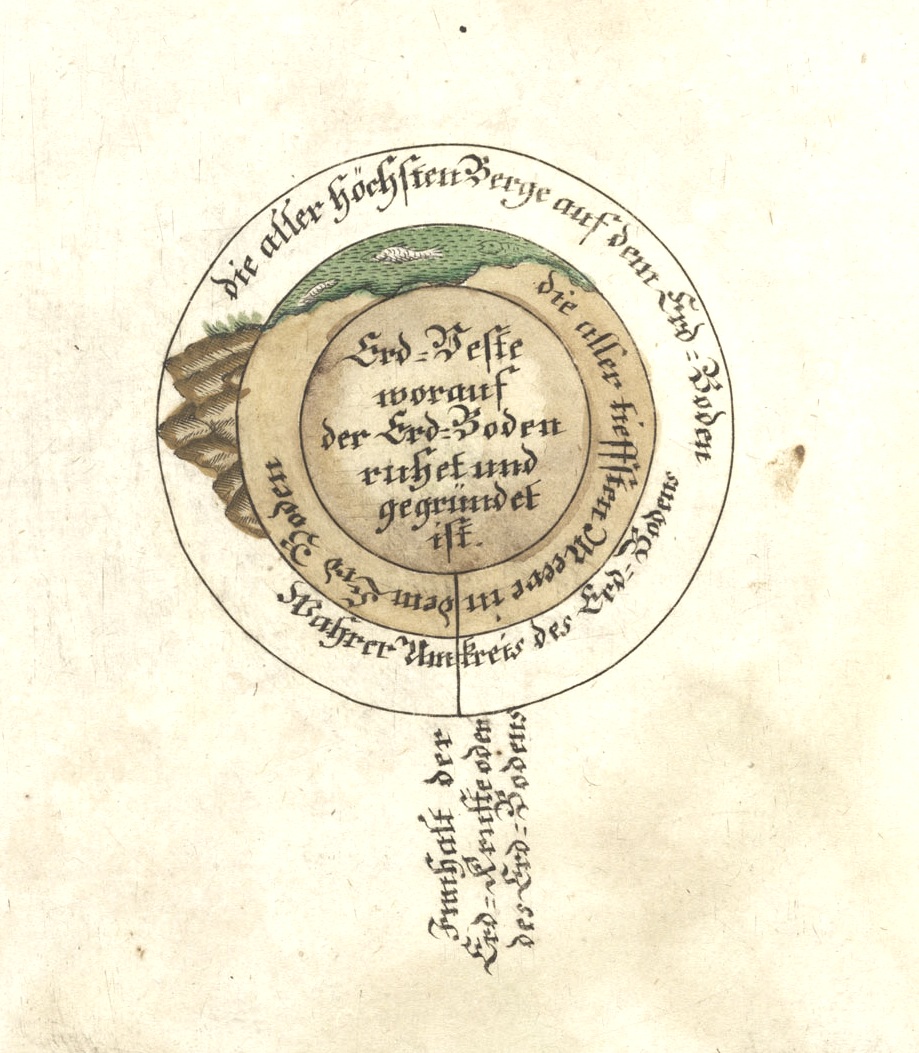 die aller höchsten Berge auf dem Erd=Boden
die aller tieffsten Meere in dem Erd Boden
Erd=Veste
worauf
der Erd=Boden
ruhet und
gegründet
ist.
Wahrer Umkreis des Erd=Bodens
Innhalt der
Erd=Kruste oden
des Erd=Bodens